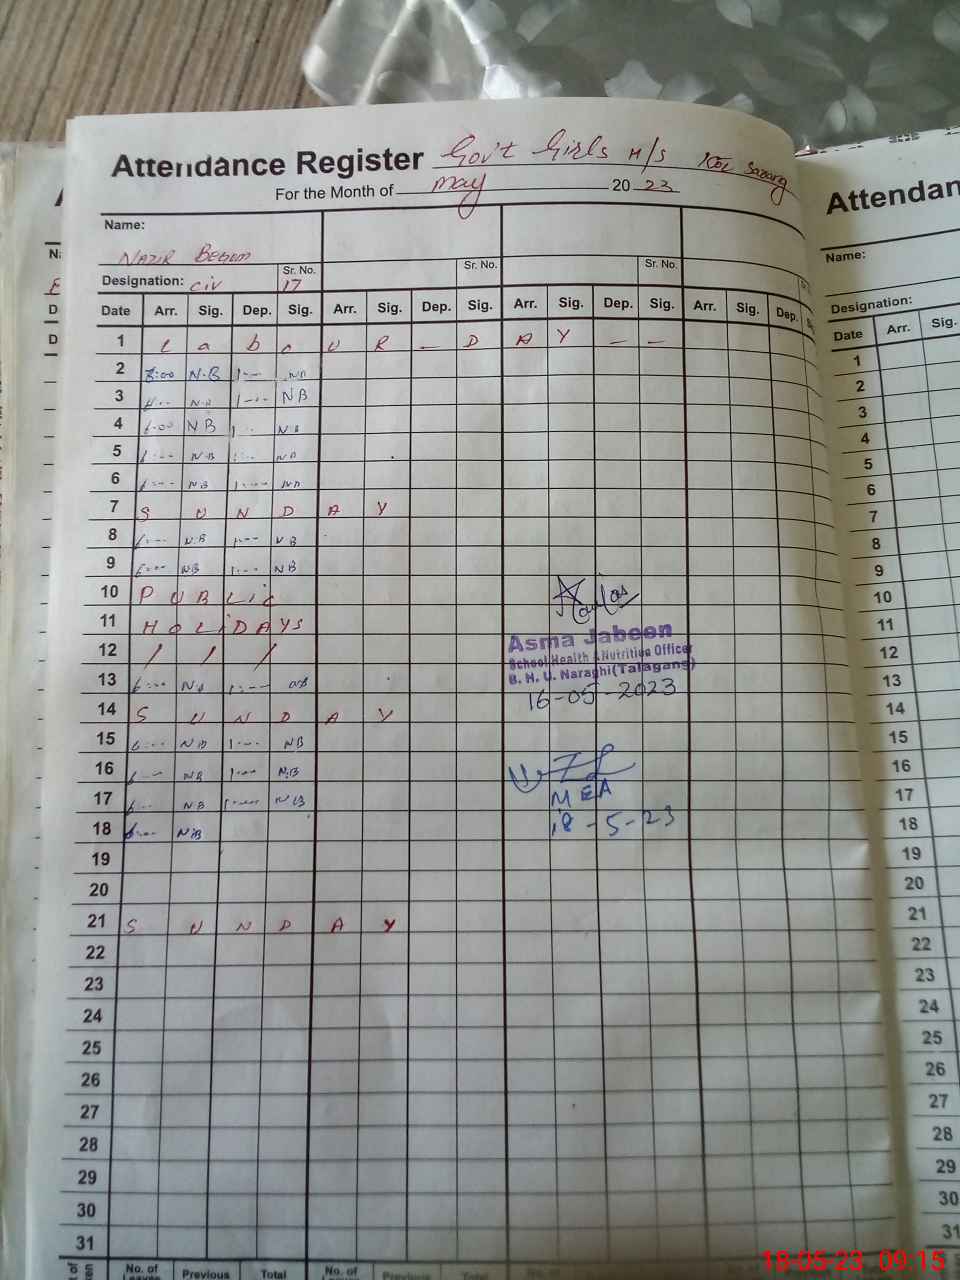 Attendance Register Gov't Girls H/S Kot Sarang
For the Month of May 20 23
Name:
NAZIR BEGUM
Designation: CIV Sr. No. 17 Sr. No. Sr. No.
Date Arr. Sig. Dep. Sig. Arr. Sig. Dep. Sig. Arr. Sig. Dep. Sig. Arr. Sig. Dep.
1 L a b o U R - D A Y - -
2 N.B NB
3 NB NB
4 6:00 NB NB
5 NB NB
6 NB NB
7 S U N D A Y
8 NB NB
9 NB NB
10 P U B L i C
11 H O L i D A Y S
12 / / /
13 NB NB
14 S U N D A Y
15 NB NB
16 NB NB
17 NB NB
18 NB
19
20
21 S U N D A Y
22
23
24
25
26
27
28
29
30
31
Asma Jabeen
School Health & Nutrition Officer
B. H. U. Naraghi (Talagang)
16-05-2023
MEA
18-5-23
No. of Previous Total No. of Previous Total
Attendan
Name:
Designation:
Date Arr. Sig.
1
2
3
4
5
6
7
8
9
10
11
12
13
14
15
16
17
18
19
20
21
22
23
24
25
26
27
28
29
30
31
18-05-23 09:15